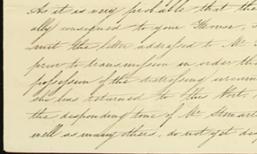 As it is very probable that the
ally consigned to your Honor,
the letter addressed to Mr
prior to transmission in order th
possession of the distressing
she has returned to the
the desponding tone of Mr Stewart
well as many others, do not yet